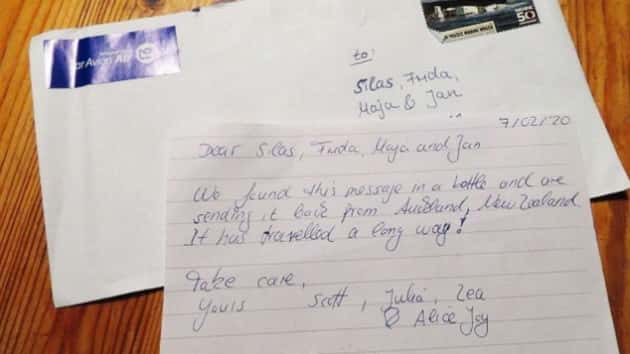 par Avion
to:
Silas, Frida,
Maja & Jan
7/02/20
Dear Silas, Frida, Maja and Jan
We found this message in a bottle and are
sending it back from Auckland, New Zealand
It has travelled a long way!
Take care,
Yours Scott, Julia, Zea
& Alice Joy
50